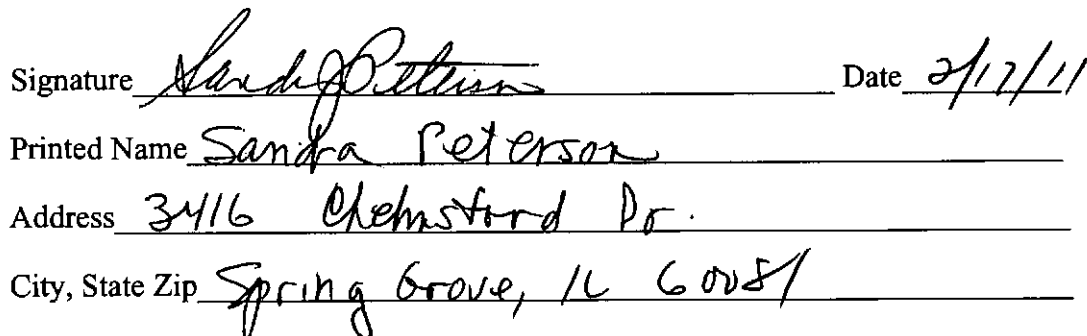 Signature Sandra J Peterson Date 2/17/11
Printed Name Sandra Peterson
Address 3416 Chelmsford Dr.
City, State Zip Spring Grove, IL 60081